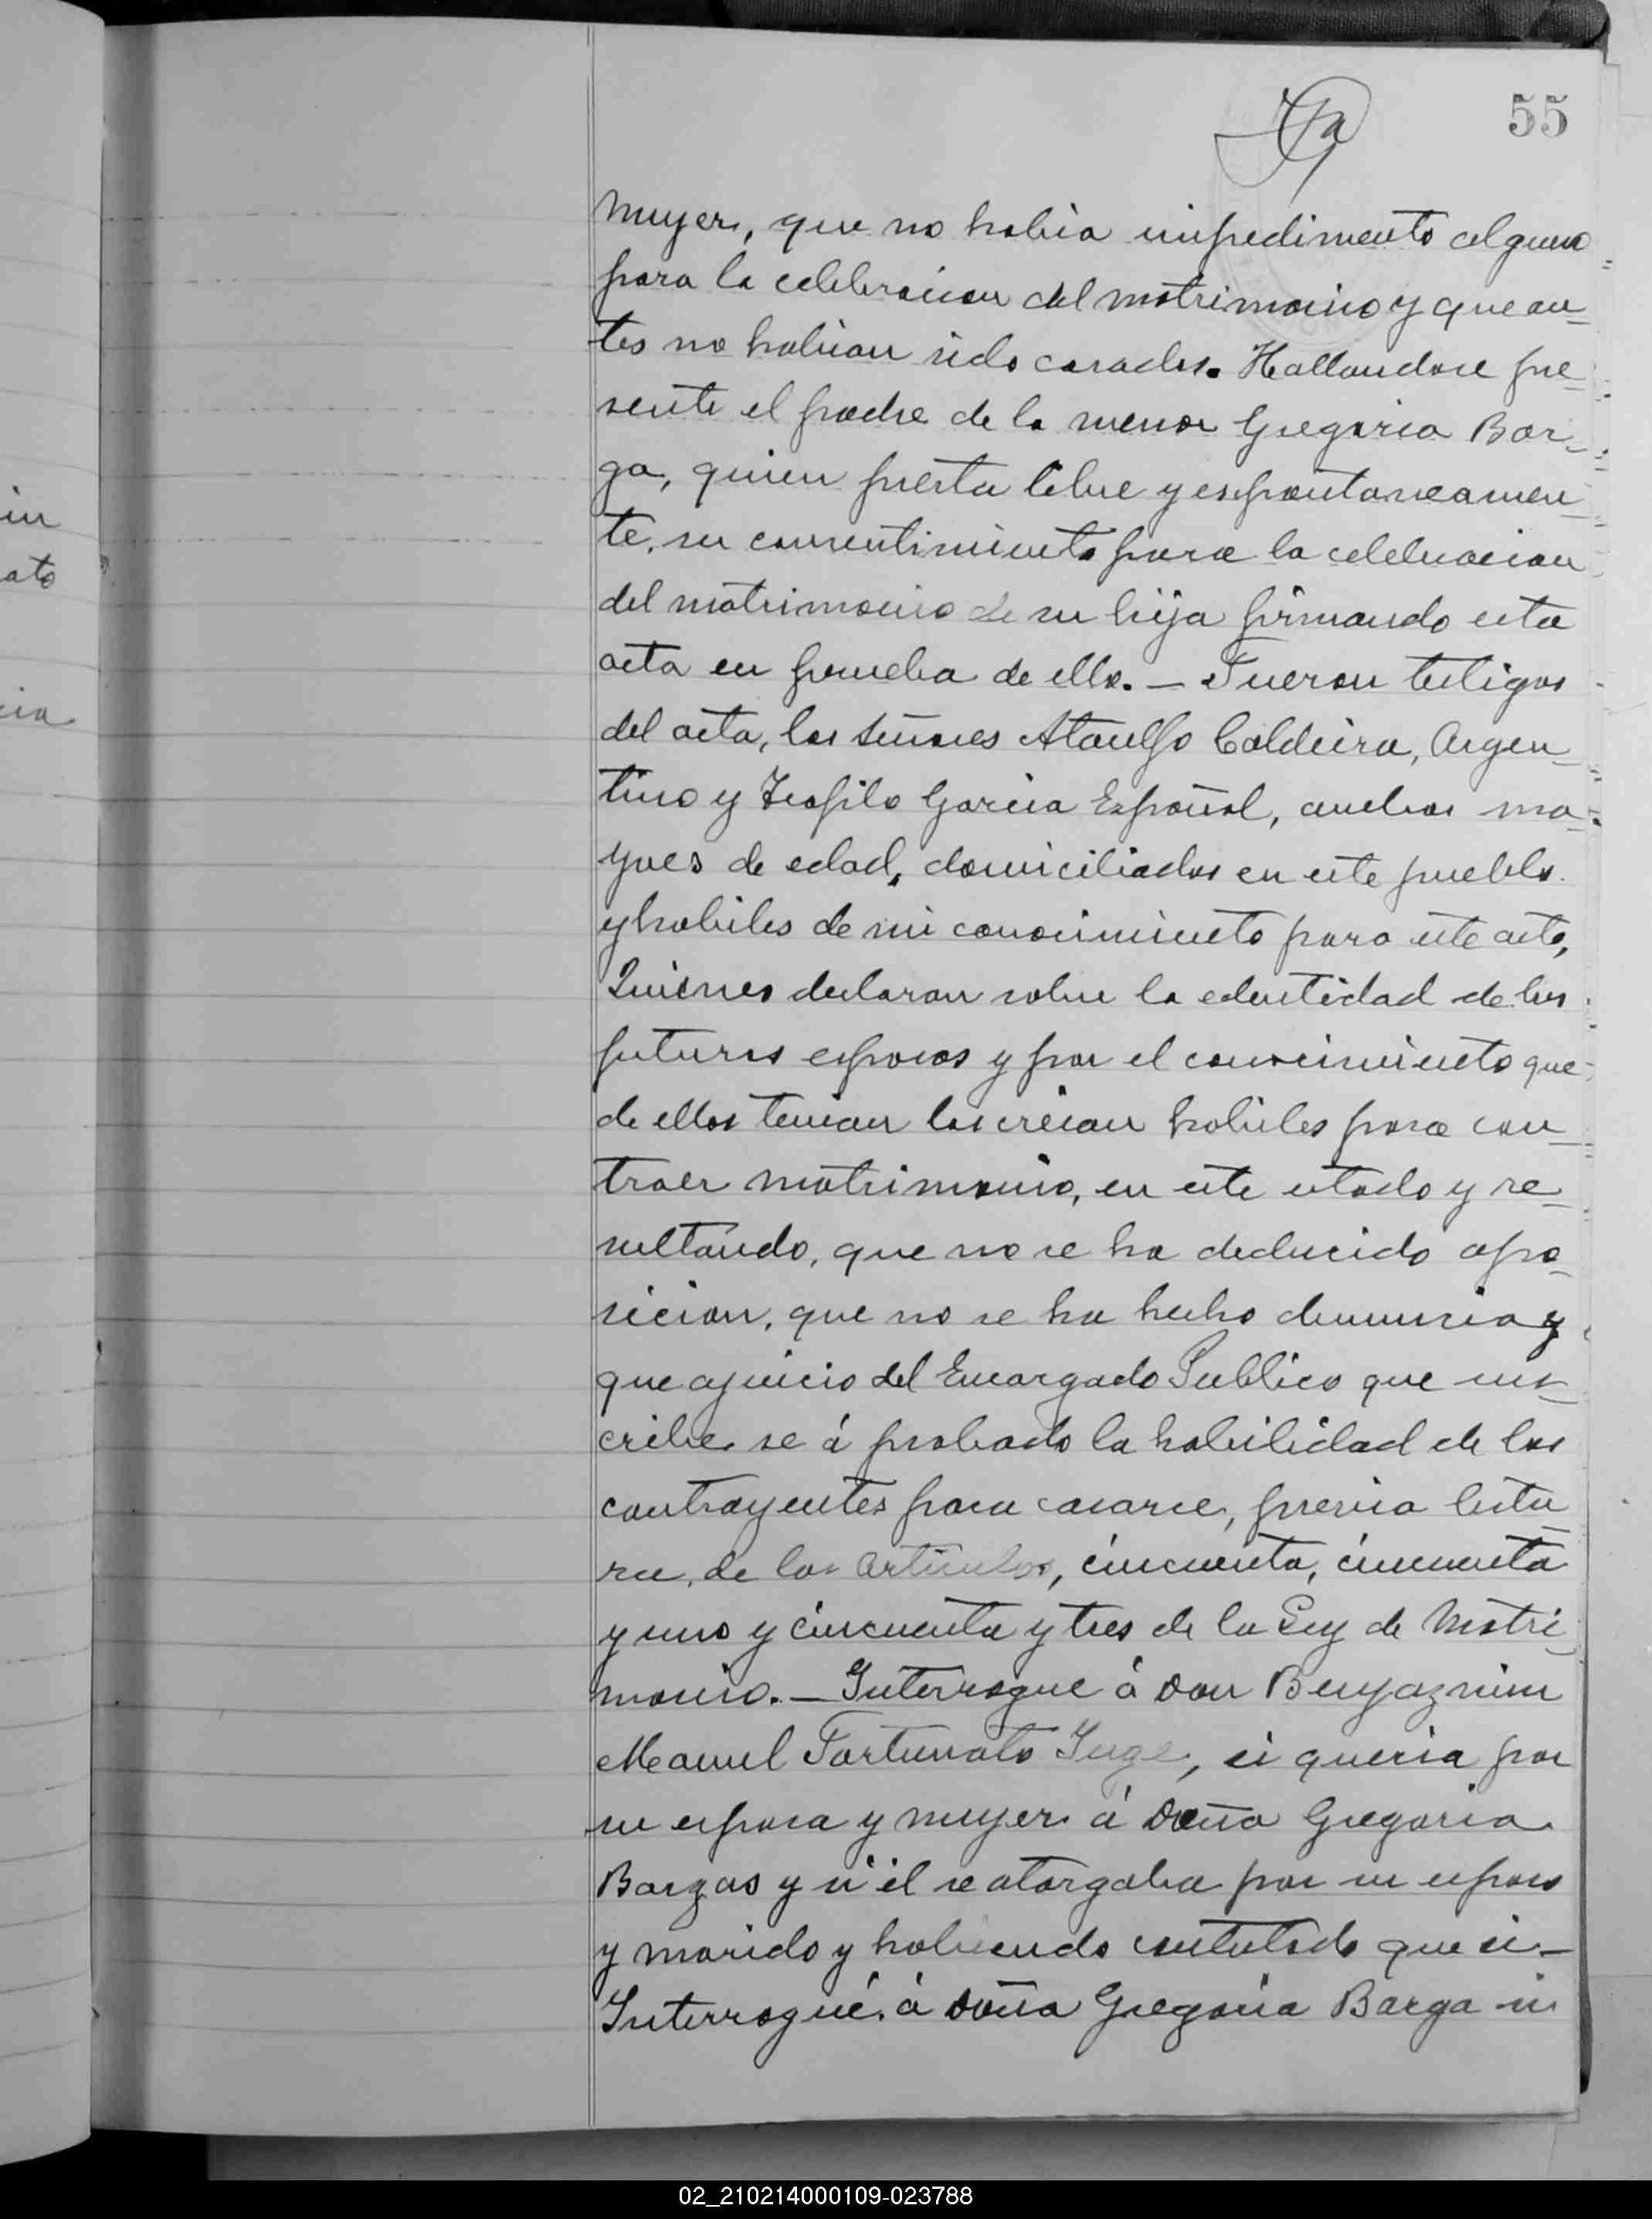 55
muyer, que no habia impedimento alguno
para la celebracion del matrimonio y que an_
tes no habian sido casados. Hallandose pre_
sente el padre de la menor Gregoria Bar_
ga, quien presta libre y espontaneamen_
te, su consentimiento para la celebracion
del matrimonio de su hija firmando esta
acta en prueba de ello. _ Fueron testigos
del acta, los señores Ataulfo Caldeira, Argen_
tino y Teofilo Garcia Español, ambos ma_
yores de edad, domiciliados en este pueblo
y habiles de mi conocimiento para este acto,
Quienes declaran sobre la edentidad de los
futuros esposos y por el conocimiento que
de ellos tenian los creian habiles para con_
traer matrimonio, en este estado y re_
sultando, que no se ha deducido opo_
sicion, que no se ha hecho denuncia y
que ajuicio del Encargado Publico que sus_
cribe se á probado la habilidad de los
contrayentes para casarce, previa lectu_
ra, de los articulos, cincuenta, cincuenta
y uno y cincuenta y tres de la Ley de Matri_
monio. _ Interrogue á Don
Manuel Fortunato, si queria por
su esposa y muyer á Doña Gregoria
Bargas y si él se otorgaba por su esposo
y marido y habiendo contestado que si _
Interrogué á Doña Gregoria Barga si
in
ato
cia
02_210214000109-023788